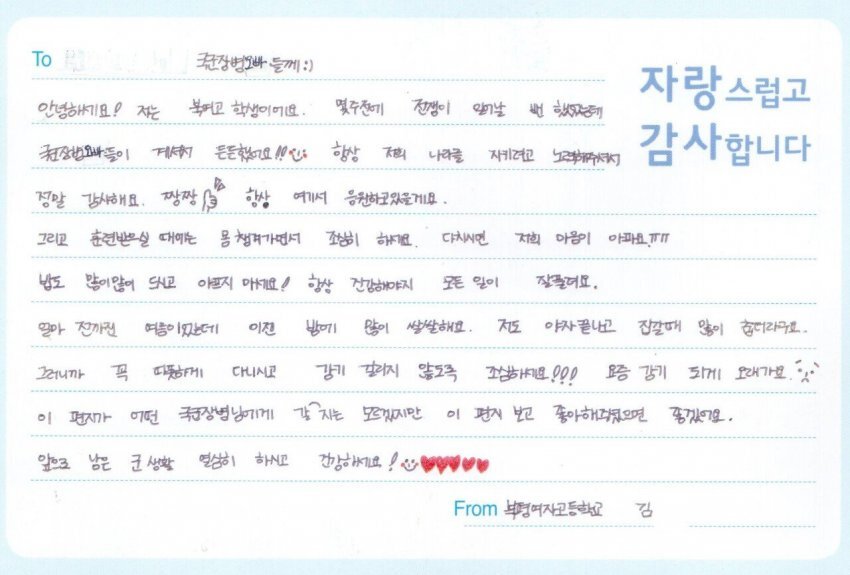 To 국군장병오빠들께:)
자랑스럽고
감사합니다
안녕하세요! 저는 북여고 학생이에요. 몇주전에 전쟁이 일어날 뻔 했었는데
국군장병오빠들이 계셔서 든든했어요!! 항상 저희 나라를 지키려고 노력해주셔서
정말 감사해요. 짱짱 항상 여기서 응원하고있을게요.
그리고 훈련받으실 때에는 몸 챙겨가면서 조심히 하세요. 다치시면 저희 마음이 아파요.ㅠㅠ
밥도 많이많이 드시고 아프지 마세요! 항상 건강해야지 모든 일이 잘풀려요.
얼마 전까진 여름이었는데 이젠 밤에 많이 쌀쌀해요. 저도 야자끝나고 집갈때 많이 춥더라구요.
그러니까 꼭 따뜻하게 다니시고 감기 걸리지 않도록 조심하세요!!! 요즘 감기 되게 오래가요.
이 편지가 어떤 국군장병님에게 갈지는 모르겠지만 이 편지 보고 좋아해주셨으면 좋겠어요.
앞으로 남은 군 생활 열심히 하시고 건강하세요! ♥♥♥♥♥
From 부평여자고등학교 김